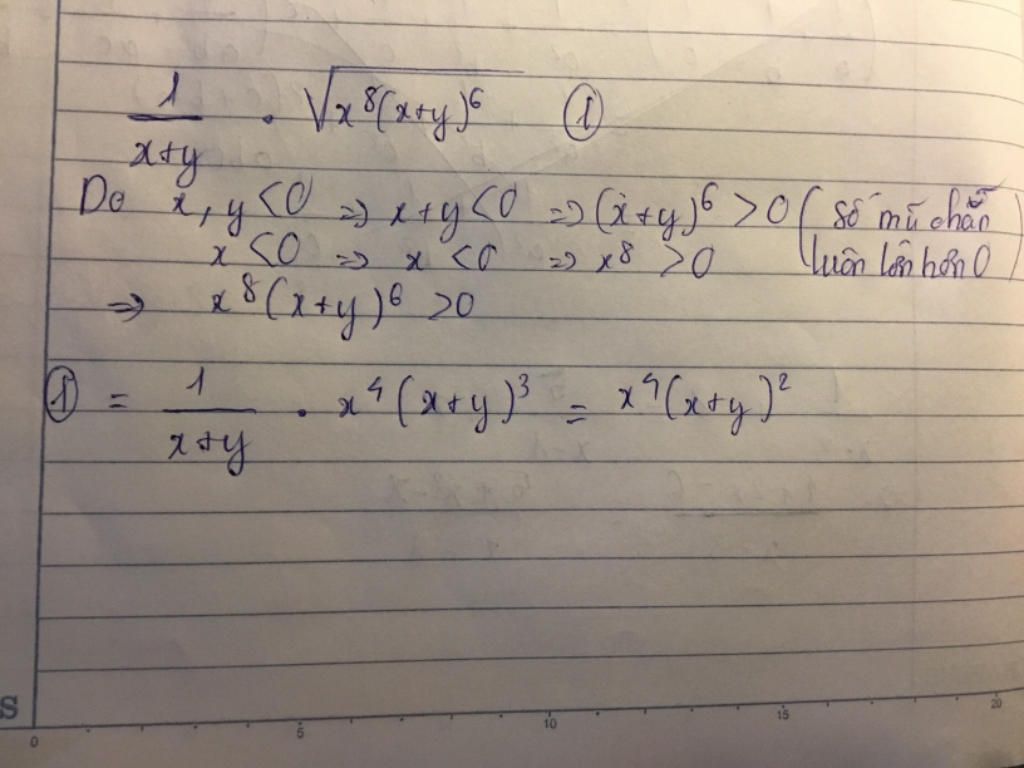 1/(x+y) . √(x⁸(x+y)⁶) ①
Do x, y < 0 => x+y < 0 => (x+y)⁶ > 0 (số mũ chẵn
x < 0 => x < 0 => x⁸ > 0 luôn lớn hơn 0)
=> x⁸(x+y)⁶ > 0
① = 1/(x+y) . x⁴(x+y)³ = x⁴(x+y)²
S
0 5 10 15 20